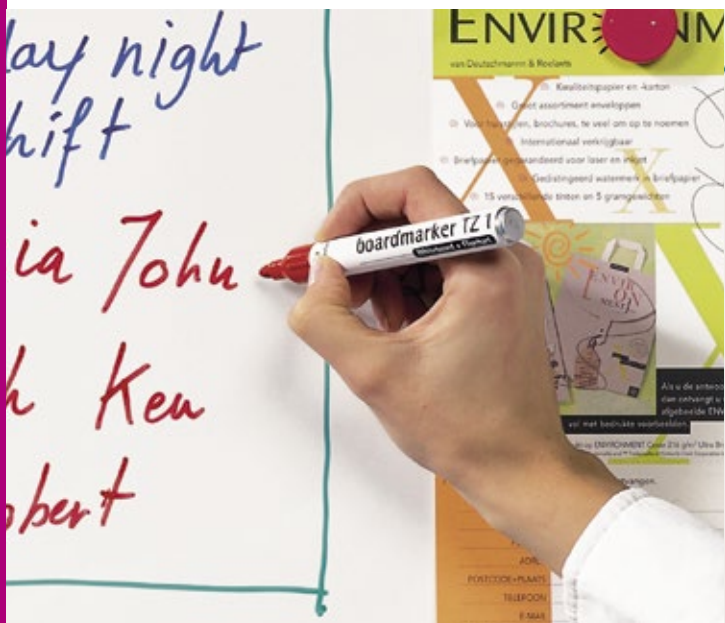 lay night
hift
ia John
h Ken
obert
boardmarker TZ 1
ENVIR NM
van Deutschmann & Roelants
Kwaliteitspapier en -karton
Groot assortiment enveloppen
Voor huisstijlen, brochures, te veel om op te noemen
Internationaal verkrijgbaar
Briefpapier gegarandeerd voor laser en inkjet
Gedistingeerd watermerk in briefpapier
15 verschillende tinten en 5 gramgewichten
ENVIR
ON
MENT
Als u de antwoo
dan ontvangt u
afgebeelde ENV
vol met bedrukte voorbeelden.
op ENVIRONMENT
ontvangen.
POSTCODE+PLAATS
TELEFOON
E-MAIL